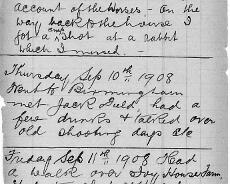 account of the Horses - On the
way back to the house I
got a snap shot at a rabbit
which I missed. -
Thursday Sep 10th 1908
Went to Birmingham
met Jack Guld, had a
few drinks & talked over
old shooting days etc
Friday Sep 11th 1908 Had
a walk over Ivy House Farm.